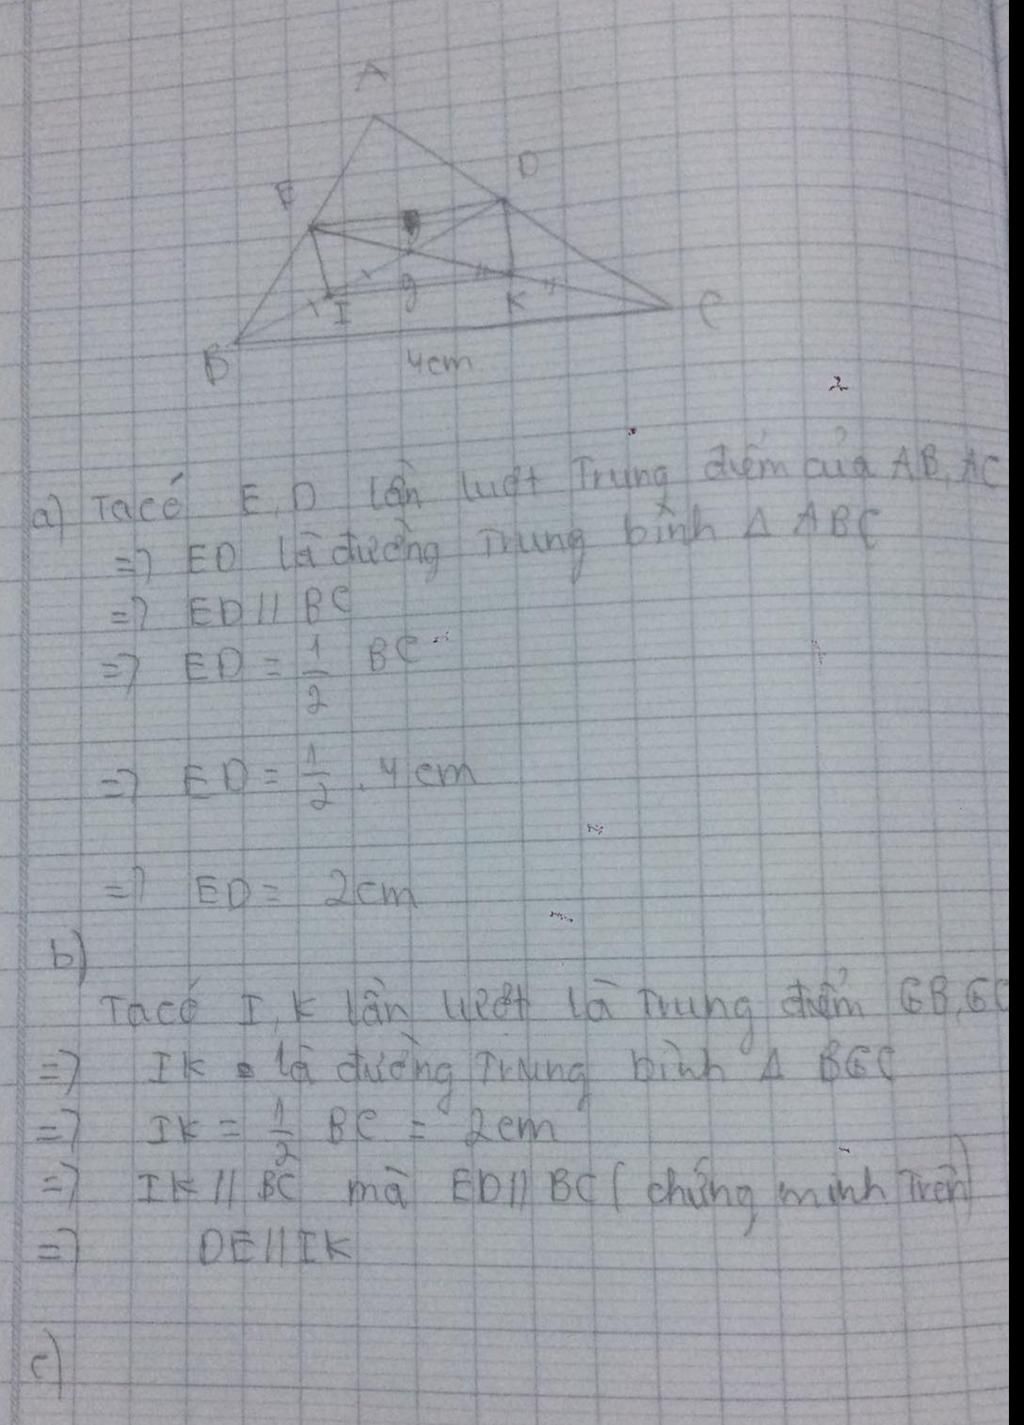 A
E
D
g
I
K
B
C
4cm
a) Ta có E, D lần lượt Trung điểm của AB, AC
=> ED là đường Trung bình Δ ABC
=> ED // BC
=> ED = 1/2 BC
=> ED = 1/2 . 4cm
=> ED = 2cm
b)
Ta có I, K lần lượt là Trung điểm GB, GC
=> IK là đường Trung bình Δ BGC
=> IK = 1/2 BC = 2cm
=> IK // BC mà ED // BC ( chứng minh Trên)
=> DE // IK
c)